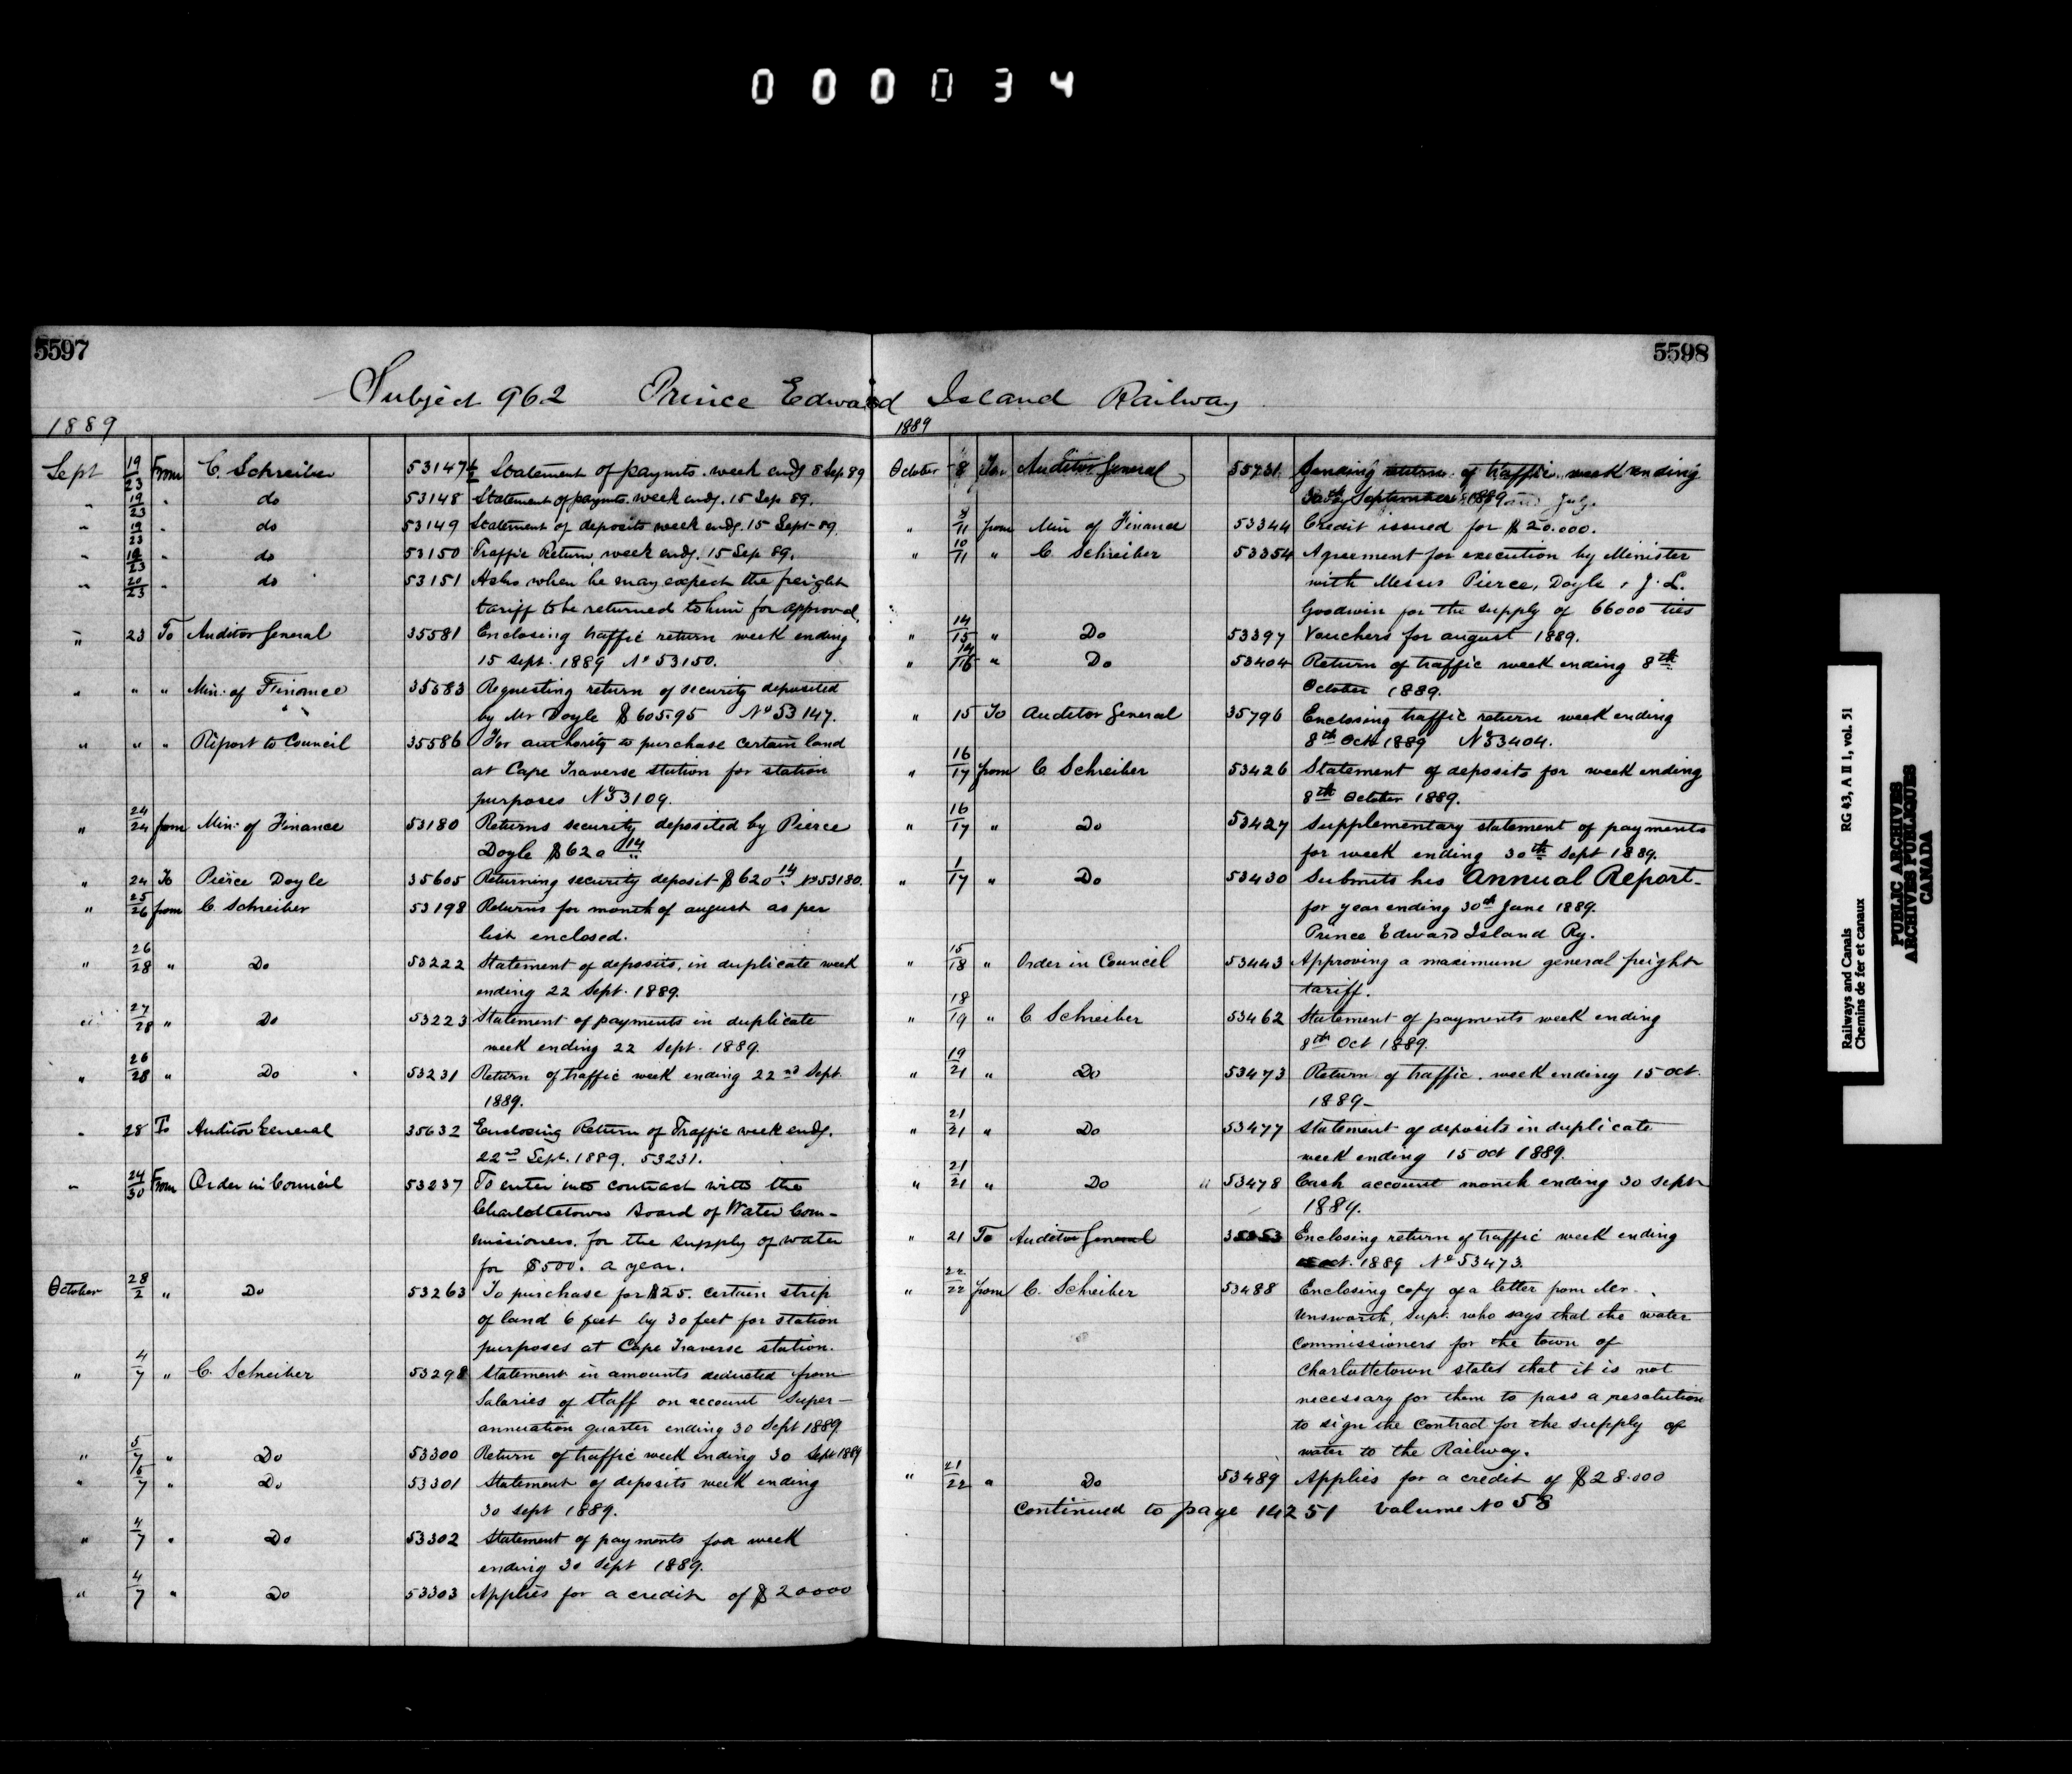 000034
5597
Subject 962 Prince Edward Island Railway
1889
Sept 19/23 From C. Schreiber 53147½ Statement of paymts. week endg 8 Sep 89
" 19/23 " do 53148 Statement of paymts. week endg. 15 Sep. 89.
" 19/23 " do 53149 Statement of deposits week endg. 15 Sept 89.
" 19/23 " do 53150 Traffic Return, week endg. 15 Sep 89.
" 20/23 " do 53151 Asks when he may expect the freight
tariff to be returned to him for approval
" 23 To Auditor General 35581 Enclosing traffic return week ending
15 Sept. 1889 No 53150.
" " " Min: of Finance 35583 Requesting return of security deposited
by Mr Doyle $605.95 No 53147.
" " " Report to Council 35586 For authority to purchase certain land
at Cape Traverse station for station
purposes No 53109.
" 24/24 from Min: of Finance 53180 Returns security deposited by Pierce
Doyle $620 14
" 24 To Pierce Doyle 35605 Returning security deposit $620 14 No 53180.
" 25/26 from C. Schreiber 53198 Returns for month of august as per
list enclosed.
" 26/28 " Do 53222 Statement of deposits, in duplicate week
ending 22 Sept. 1889.
" 27/28 " Do 53223 Statement of payments in duplicate
week ending 22 Sept. 1889.
" 26/28 " Do 53231 Return of traffic week ending 22nd Sept
1889.
" 28 To Auditor General 35632 Enclosing Return of Traffic week endg.
22nd Sept. 1889. 53231.
" 24/30 From Order in Council 53237 To enter into contract with the
Charlottetown Board of Water Com-
missioners. for the supply of water
for $500. a year.
October 28/2 " Do 53263 To purchase for $25. certain strip
of land 6 feet by 30 feet for station
purposes at Cape Traverse station.
" 4/7 " C. Schreiber 53298 Statement in amounts deducted from
Salaries of staff on account Super-
annuation quarter ending 30 Sept 1889.
" 5/7 " Do 53300 Return of traffic week ending 30 Sept 1889
" 5/7 " Do 53301 Statement of deposits week ending
30 sept 1889.
" 4/7 " Do 53302 Statement of payments for week
ending 30 Sept 1889.
" 4/7 " Do 53303 Applies for a credit of $20000
5598
1889
October 8 To Auditor General Sending return of traffic week ending
30th September 1889
" 8/11 from Min of Finance 53344 Credit issued for $20.000.
" 10/11 " C Schreiber 53354 Agreement for execution by Minister
with Messrs Pierce, Doyle & J. L.
Goodwin for the supply of 66000 ties
" 14/15 " Do 53397 Vouchers for august 1889.
" 14/16 " Do 53404 Return of traffic week ending 8th
October 1889.
" 15 To Auditor General 35796 Enclosing traffic return week ending
8th Oct 1889 No 53404.
" 16/17 from C Schreiber 53426 Statement of deposits for week ending
8th October 1889.
" 16/17 " Do 53427 Supplementary statement of payments
for week ending 30th Sept 1889.
" 1/17 " Do 53430 Submits his Annual Report-
for year ending 30th June 1889.
Prince Edward Island Ry.
" 15/18 " Order in Council 53443 Approving a maximum general freight
tariff.
" 18/19 " C Schreiber 53462 Statement of payments week ending
8th Oct 1889.
" 19/21 " Do 53473 Return of traffic. week ending 15 oct.
1889-
" 21/21 " Do 53477 Statement of deposits in duplicate
week ending 15 oct 1889.
" 21/21 " Do " 53478 Cash account month ending 30 sept
1889.
" 21 To Auditor General Enclosing return of traffic week ending
oct. 1889 No 53473.
" 22/22 from C. Schreiber 53488 Enclosing copy of a letter from Mr.
Unsworth, Supt. who says that the water
commissioners for the town of
Charlottetown stated that it is not
necessary for them to pass a resolution
to sign the Contract for the supply of
water to the Railway.
" 21/22 " Do 53489 Applies for a credit of $28.000
Continued to page 14251 Volume No 58
Railways and Canals RG 43, A II 1, vol. 51
Chemins de fer et canaux
PUBLIC ARCHIVES
ARCHIVES PUBLIQUES
CANADA